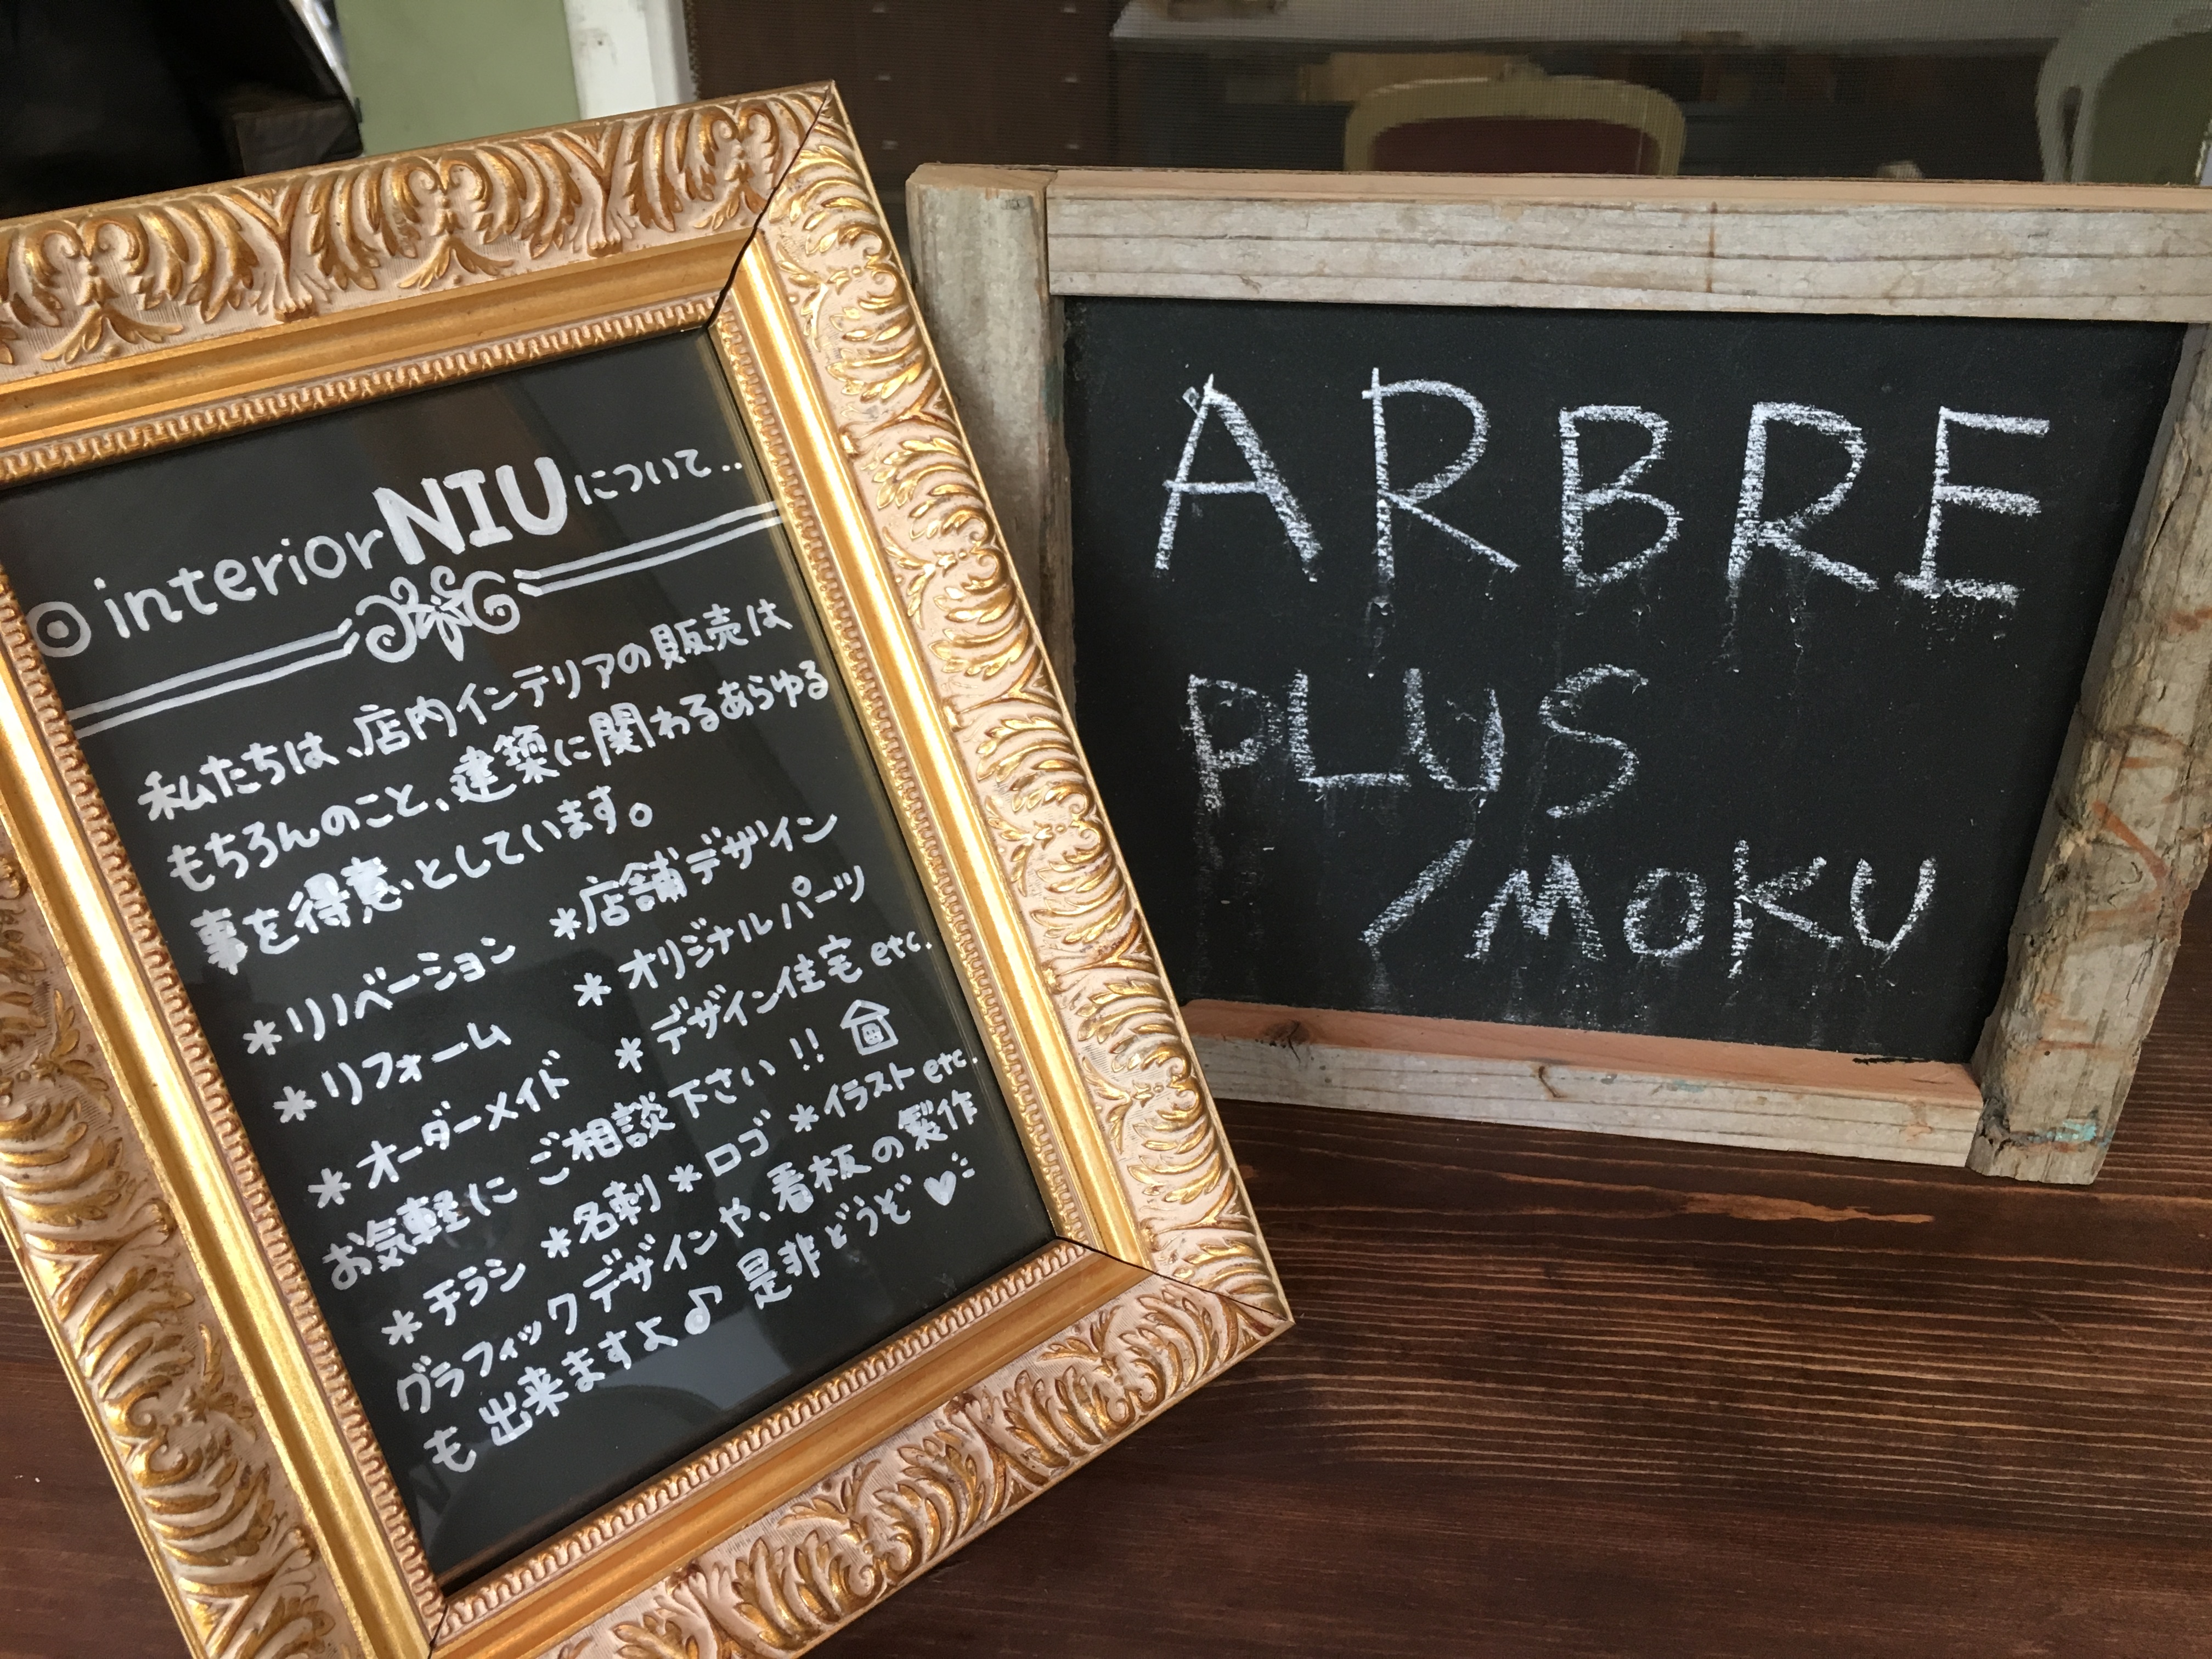 ◎ interior NIU について..
私たちは、店内インテリアの販売は
もちろんのこと、建築に関わるあらゆる
事を得意としています。
*リノベーション *店舗デザイン
*リフォーム *オリジナルパーツ
*オーダーメイド *デザイン住宅 etc.
お気軽にご相談下さい!!
*チラシ *名刺 *ロゴ *イラスト etc.
グラフィックデザインや、看板の製作
も出来ますよ♪ 是非どうぞ♥
ARBRE
PLUS
/MOKU